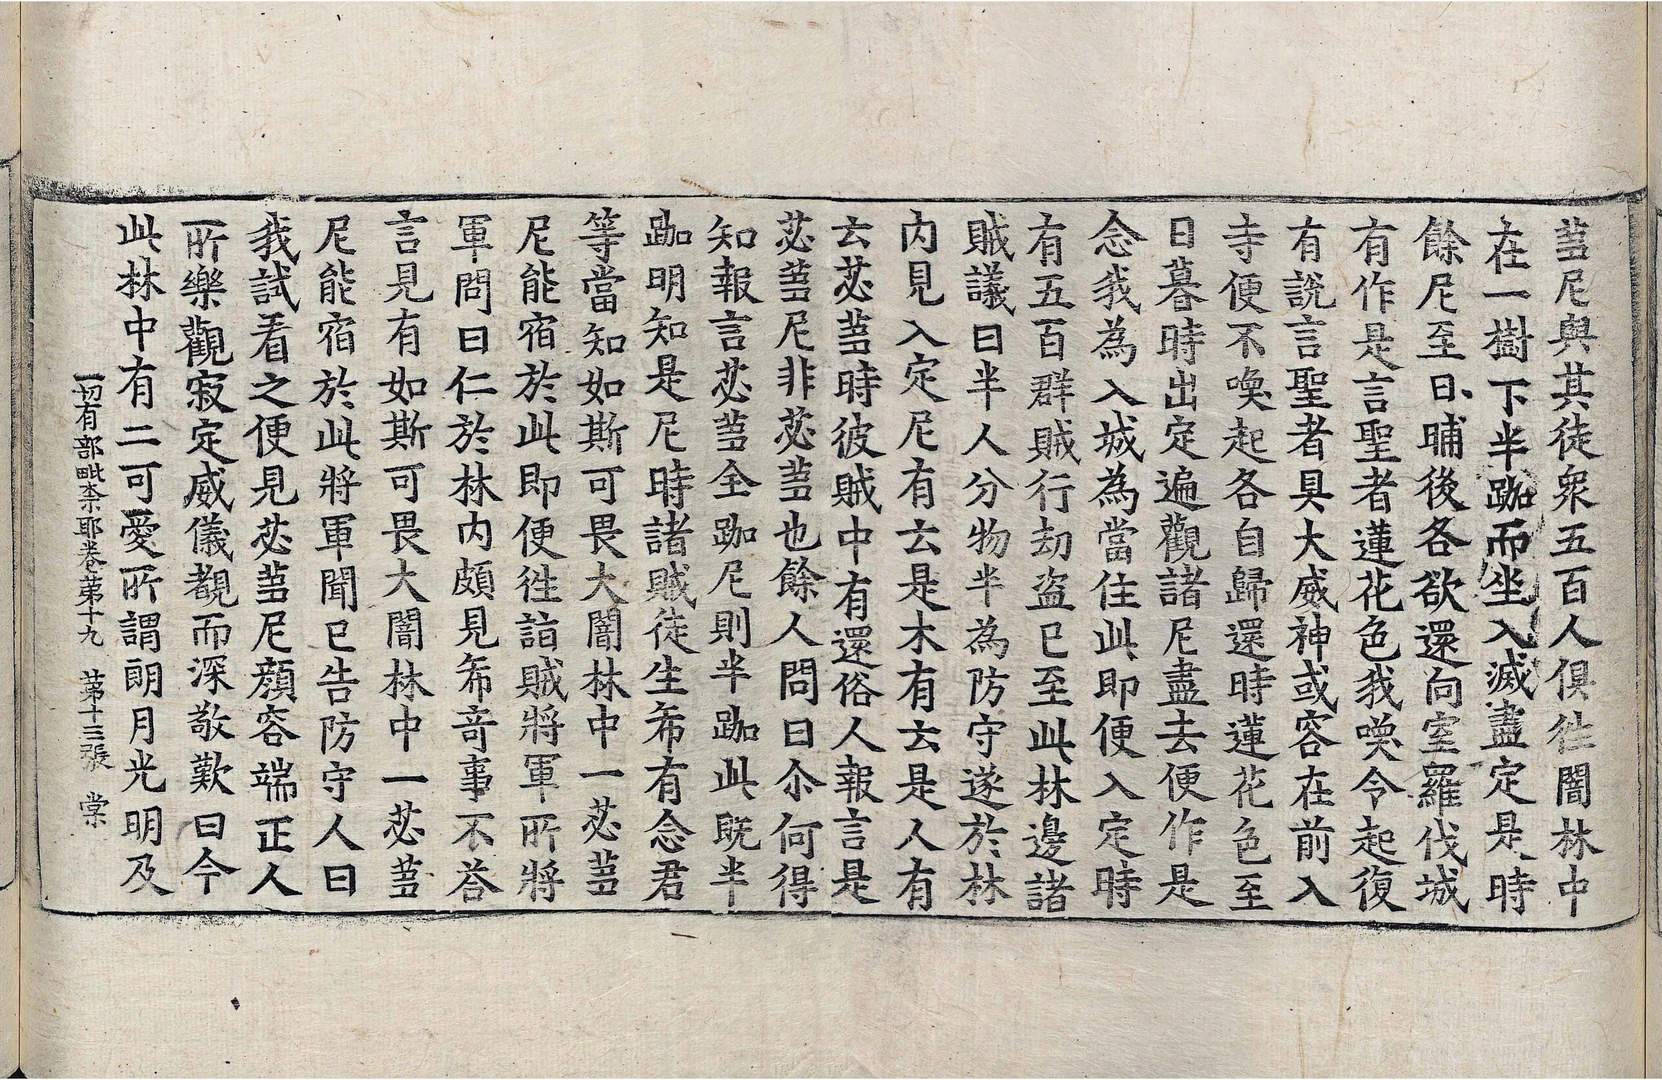 蒭尼與其徒衆五百人俱徃闇林中
在一樹下半跏而坐入滅盡定是時
餘尼至日晡後各欲還向室羅伐城
有作是言聖者蓮花色我喚令起復
有說言聖者具大威神或容在前入
寺便不喚起各自歸還時蓮花色至
日暮時出定遍觀諸尼盡去便作是
念我為入城為當住此即便入定時
有五百群賊行劫盜已至此林邊諸
賊議曰半人分物半為防守遂於林
內見入定尼有云是木有云是人有
云苾蒭時彼賊中有還俗人報言是
苾蒭尼非苾蒭也餘人問曰尒何得
知報言苾蒭全跏尼則半跏此旣半
跏明知是尼時諸賊徒生希有念君
等當知如斯可畏大闇林中一苾蒭
尼能宿於此即便徃詣賊將軍所將
軍問曰仁於林內頗見希竒事不荅
言見有如斯可畏大闇林中一苾蒭
尼能宿於此將軍聞已告防守人曰
我試看之便見苾蒭尼顔容端正人
所樂觀寂定威儀覩而深敬歎曰今
此林中有二可愛所謂朗月光明及
一切有部毗柰耶卷第十九　第十三張　棠